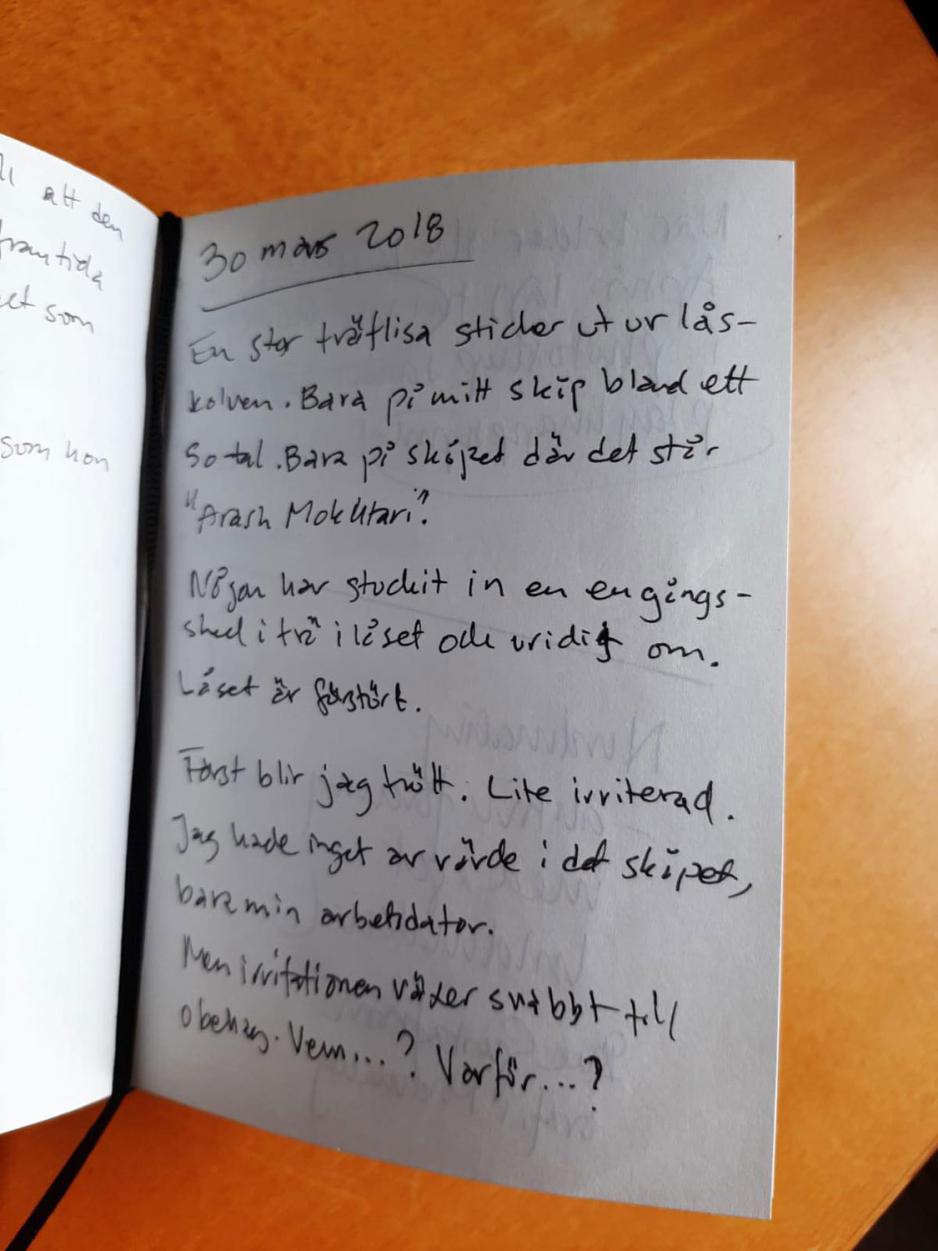 ll att den
framtida
et som
som hon
30 mars 2018
En stor träflisa sticker ut ur lås-
kolven. Bara på mitt skåp bland ett
50-tal. Bara på skåpet där det står
"Arash Mokhtari".
Någon har stuckit in en engångs-
sked i trä i låset och vridit om.
Låset är förstört.
Först blir jag trött. Lite irriterad.
Jag hade inget av värde i det skåpet,
bara min arbetsdator.
Men irritationen växer snabbt till
obehag. Vem...? Varför...?